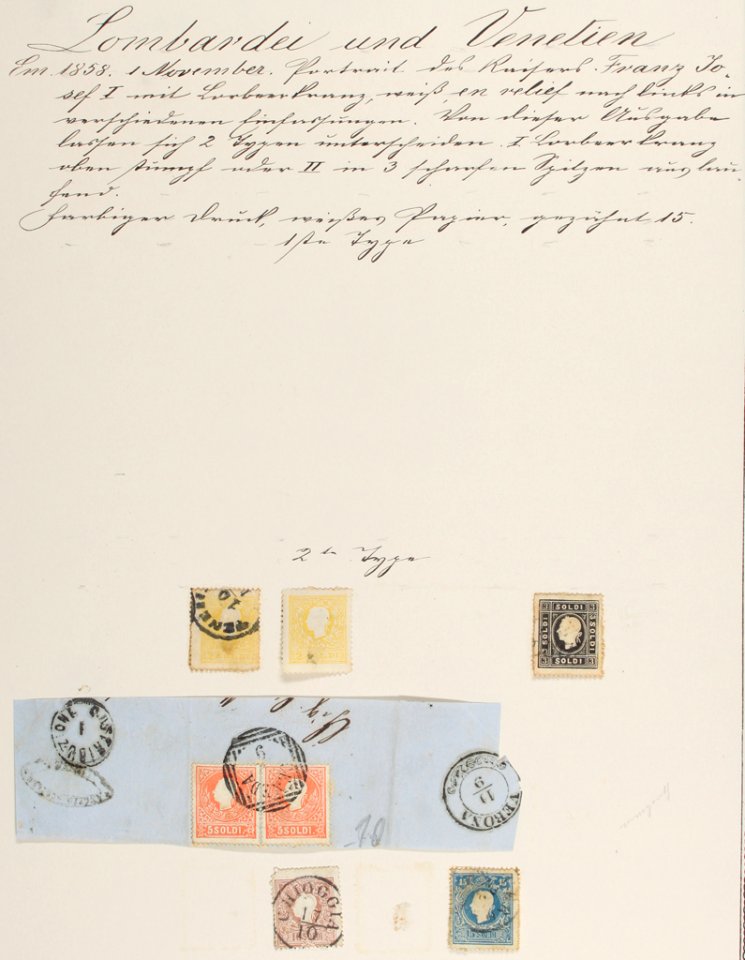 Lombardei und Venetien
Em. 1858. 1 November. Portrait des Kaisers Franz Jo-
sef I mit Lorbeerkranz, weiß, en relief nach links in
verschiedenen Einfassungen. Von dieser Ausgabe
lassen sich 2 Typen unterscheiden. I Lorbeerkranz
oben stumpf oder II in 3 scharfen Spitzen auslau-
fend.
Farbiger Druck, weißes Papier, gezähnt 15.
1ste Type
2te Type
10
3 SOLDI 3
SOLDI
SOLDI
3 SOLDI 3
DISTRIBUZIONE
1
9
11
9
VERONA
5 SOLDI
5 SOLDI
CHIOGGIA
10
15 15